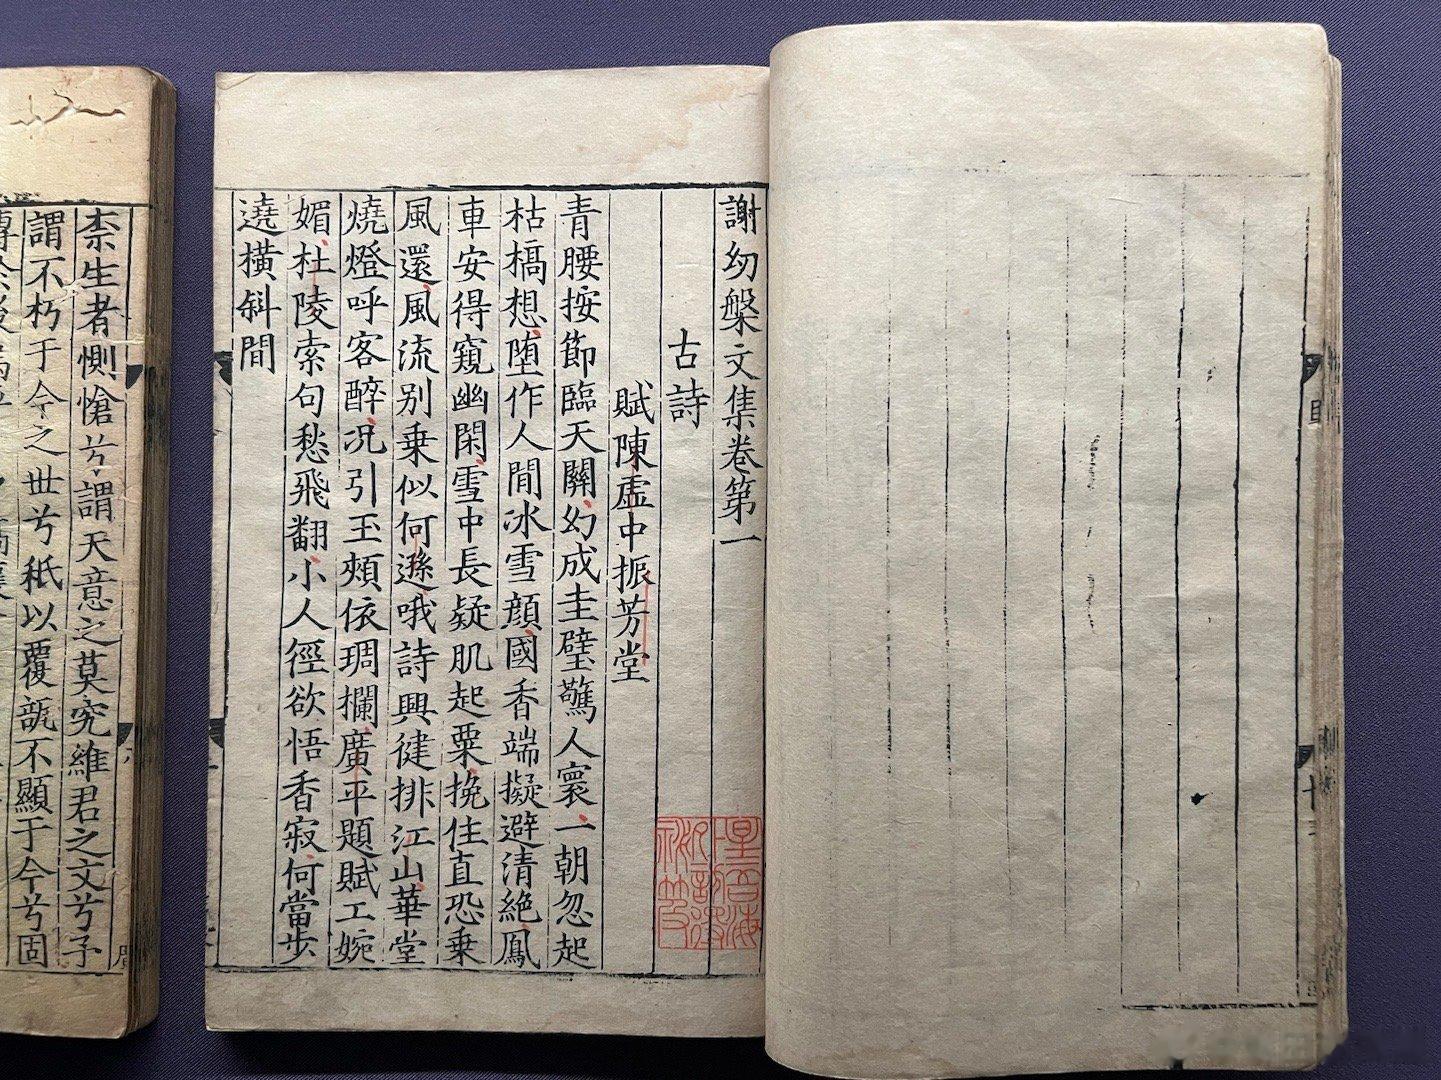 謝幼槃文集卷第一
古詩
賦陳虛中振芳堂
青腰按節臨天闗幻成圭璧驚人寰一朝忽起
枯槁想墮作人間冰雪顔國香端擬避清絶鳳
車安得窺幽閑雪中長疑肌起粟挽住直恐乗
風還風流别乗似何遜哦詩興徤排江山華堂
燒燈呼客醉况引玉頰依琱欄廣平題賦工婉
媚杜陵索句愁飛翻小人徑欲悟香寂何當步
遶横斜間
柰生者惻愴兮謂天意之莫究維君之文兮予
謂不朽于今之世兮秖以覆瓿不顯于今兮固